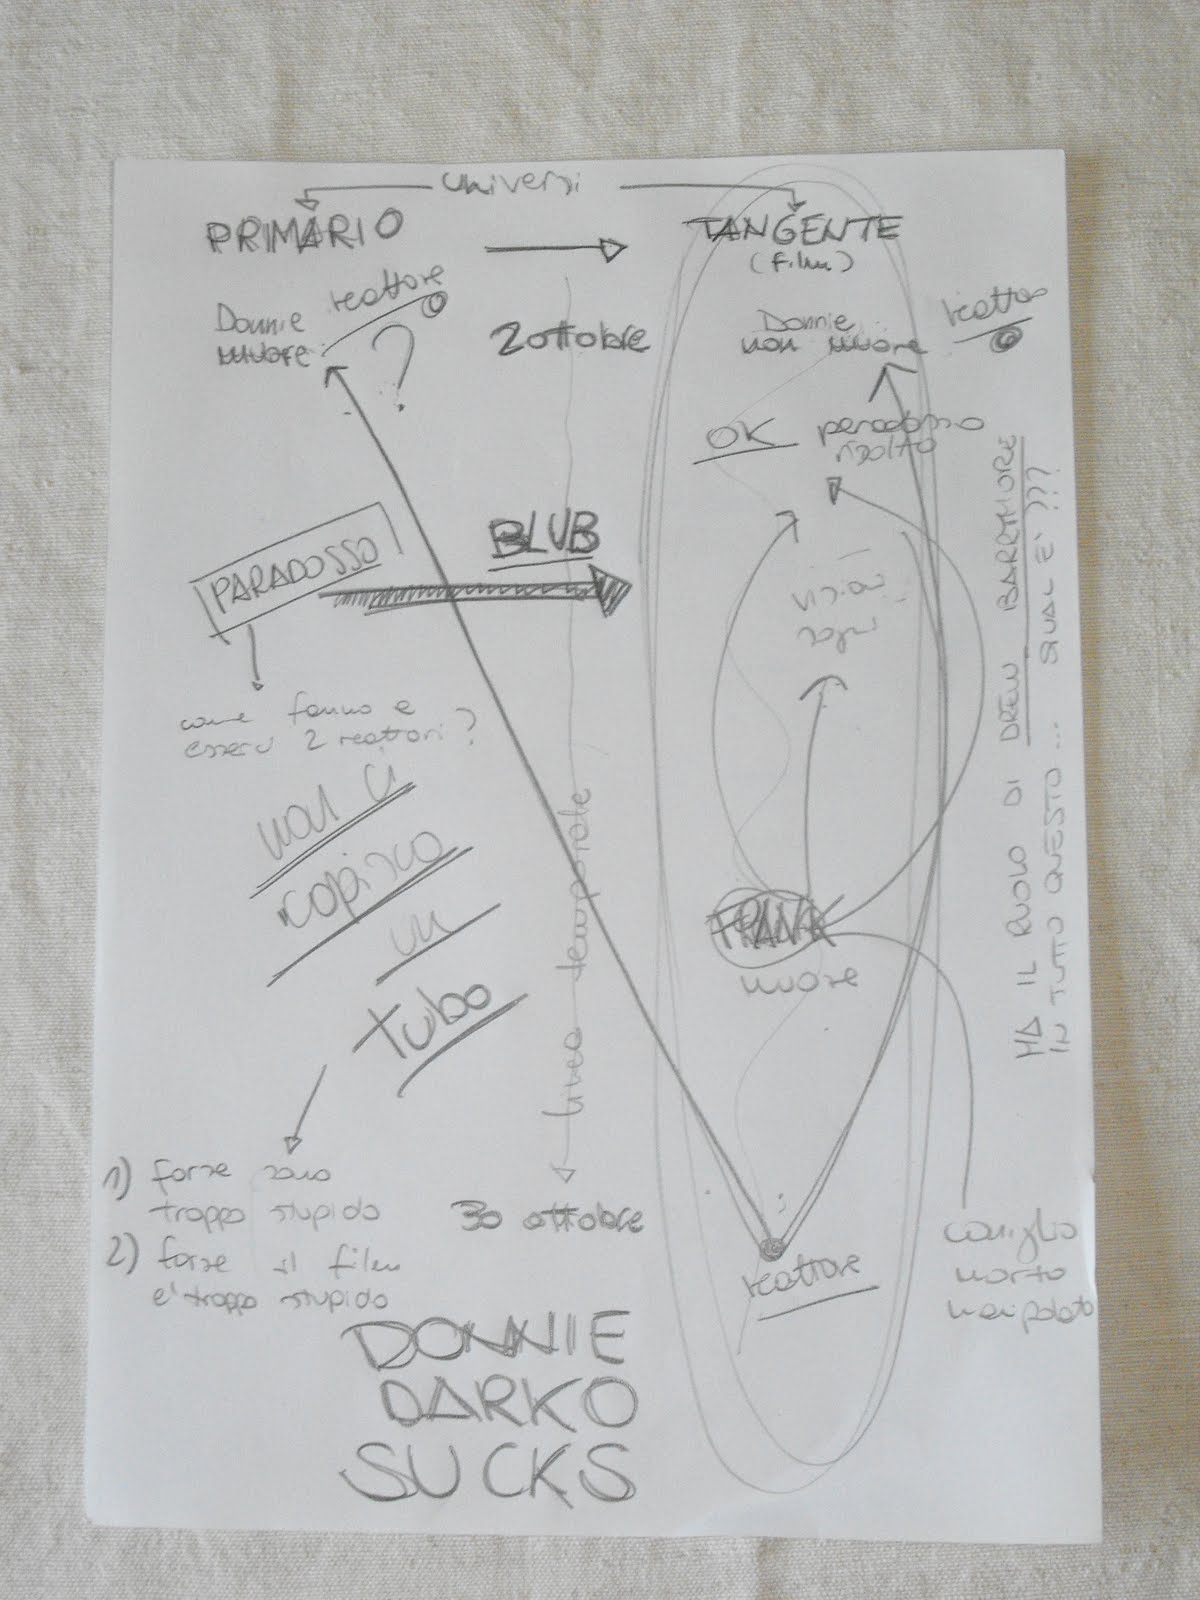 universi
PRIMARIO
TANGENTE
(film)
Donnie
muore
reattore
?
2 ottobre
Donnie
non muore
reattore
OK
paradosso
risolto
BLUB
PARADOSSO
visioni
sogni
come fanno a
esserci 2 reattori?
non ci
capisco
un
tubo
linea temporale
FRANK
muore
MA IL RUOLO DI DREW BARRYMORE
IN TUTTO QUESTO... QUAL E' ???
1) forse sono
troppo stupido
2) forse il film
e' troppo stupido
30 ottobre
reattore
coniglio
morto
manipolato
DONNIE
DARKO
SUCKS